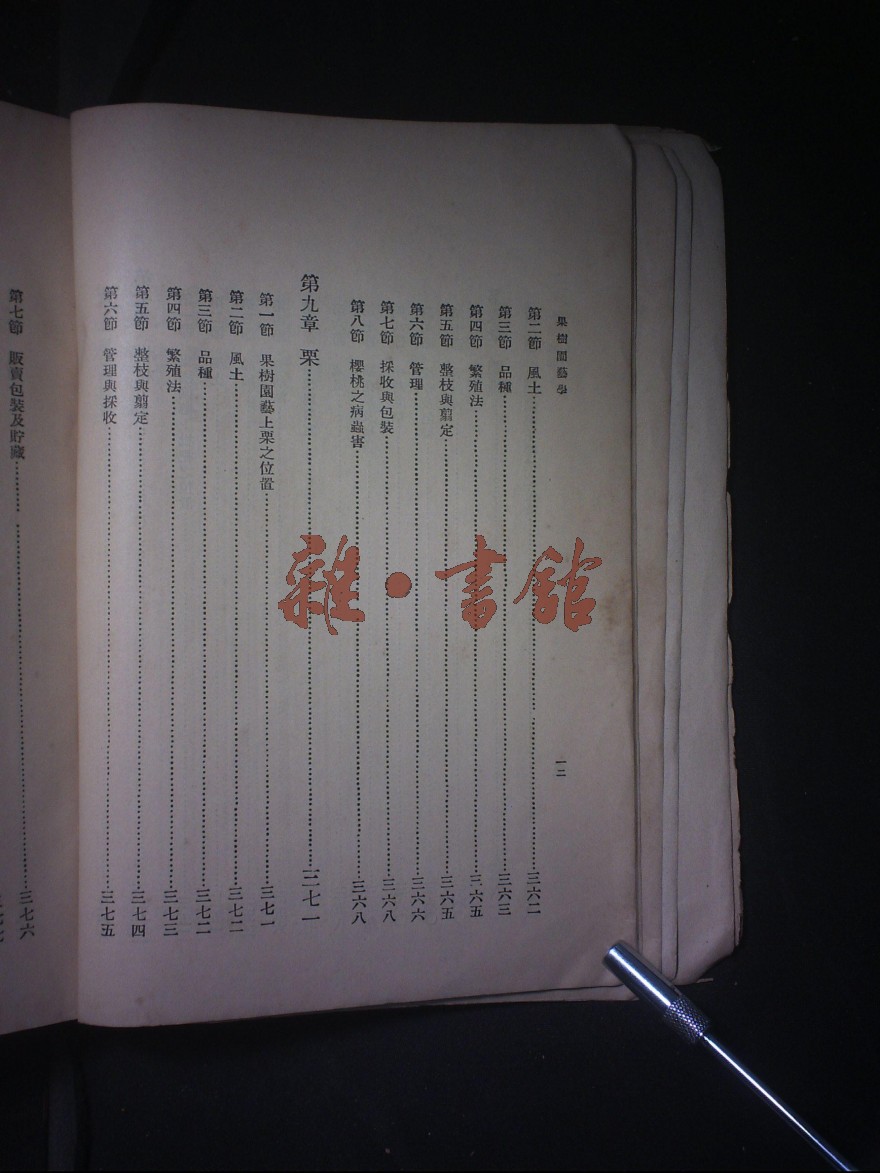 果樹園藝學 一二
第二節 風土 三六二
第三節 品種 三六三
第四節 繁殖法 三六五
第五節 整枝與翦定 三六五
第六節 管理 三六六
第七節 採收與包裝 三六八
第八節 櫻桃之病蟲害 三六八
第九章 栗 三七一
第一節 果樹園藝上栗之位置 三七一
第二節 風土 三七二
第三節 品種 三七二
第四節 繁殖法 三七三
第五節 整枝與翦定 三七四
第六節 管理與採收 三七五
第七節 販賣包裝及貯藏 三七六
雜·書館